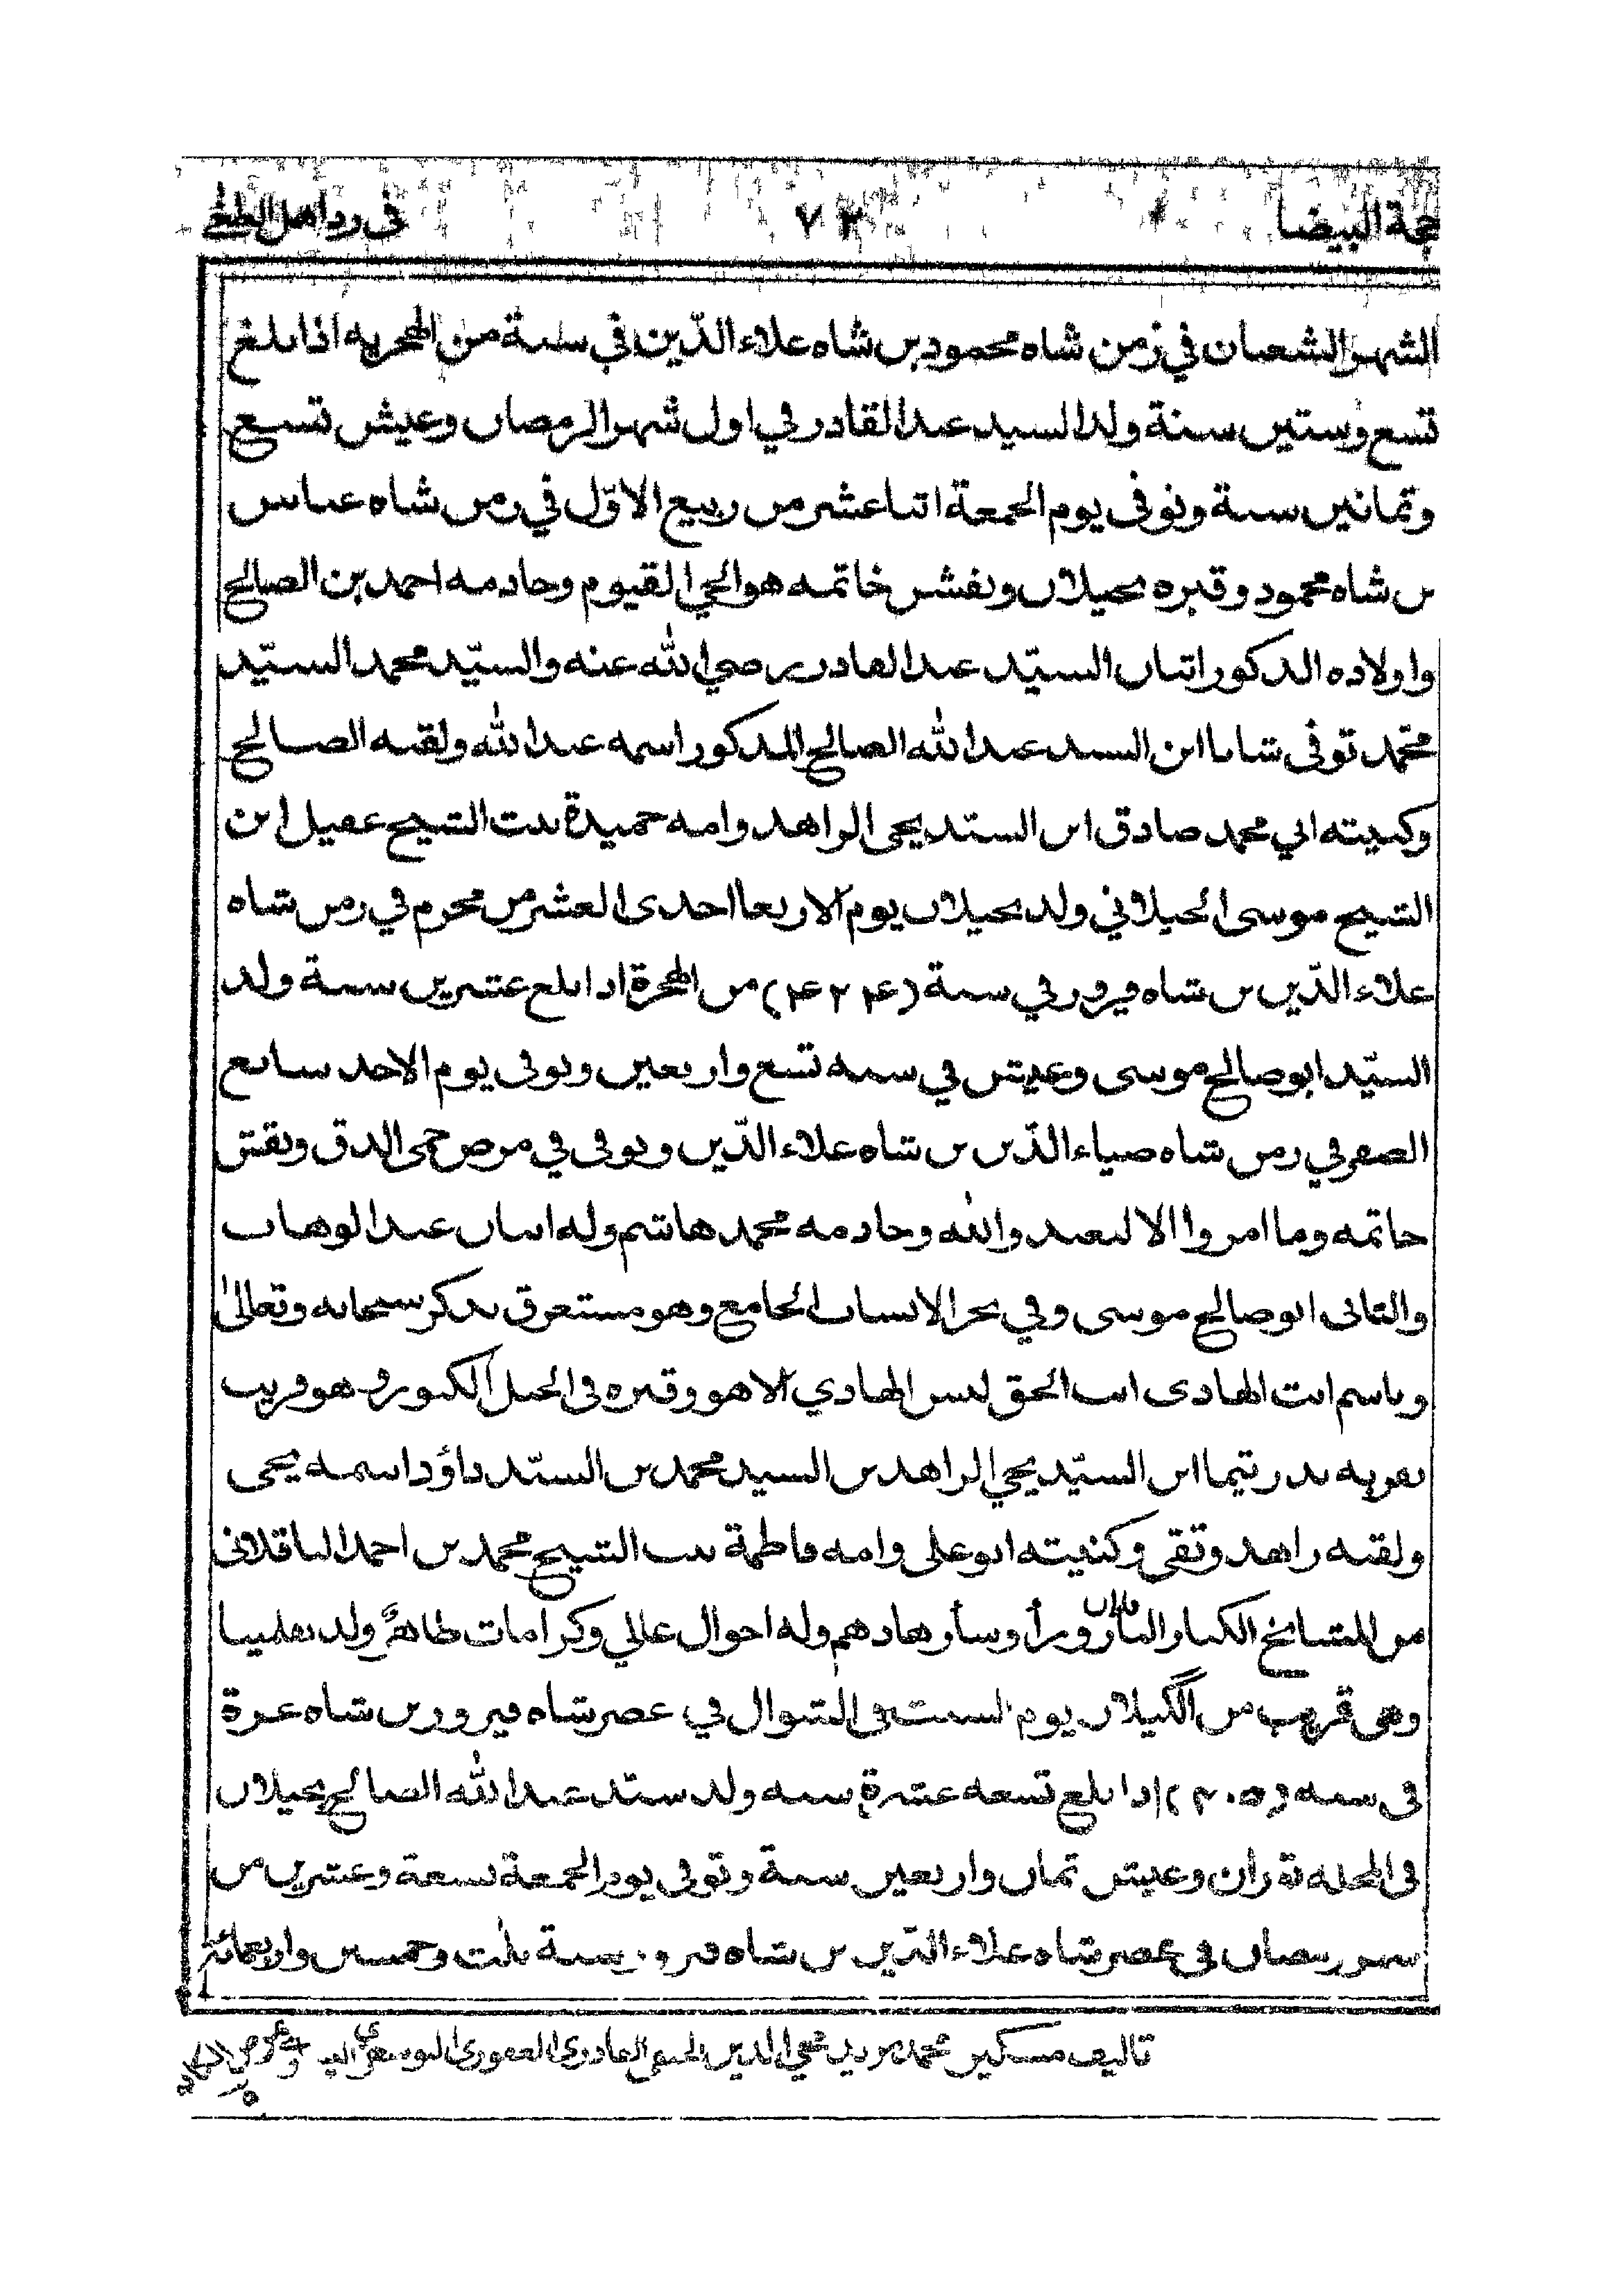 حجة البيضا ٧٢ في رد اهل الطغى
الشهر الشعبان في زمن شاه محمود بن شاه علاء الدّين في سنة من الهجريه اذا بلغ
تسع وستين سنة ولد السيد عبد القادر في اول شهر الرمضان وعيش تسع
وثمانين سنة وتوفى يوم الجمعة اثنا عشر من ربيع الاوّل في زمن شاه عباس
بن شاه محمود وقبره بجيلان ونقش خاتمه هو الحي القيوم وخادمه احمد بن الصالح
واولاده الذكور اثنان السيّد عبد القادر رضي الله عنه والسيّد محمد السيّد
محمّد توفى شابا ابن السيد عبد الله الصالح المذكور اسمه عبد الله ولقبه الصالح
وكنيته ابي محمد صادق ابن السيد يحيى الزاهد وامه حميدة بنت الشيخ عقيل ابن
الشيخ موسى الجيلاني ولد بجيلان يوم الاربعا احدى العشر من محرم في زمن شاه
علاء الدّين بن شاه فيروز في سنة (٤٢٤) من الهجرة اذا بلغ عشرين سنة ولد
السيّد ابو صالح موسى وعيش في سنه تسع واربعين وتوفى يوم الاحد سابع
الصفر في زمن شاه ضياء الدّين بن شاه علاء الدّين وتوفى في مرض حمى الدق ونقش
خاتمه وما امروا الا ليعبدوا الله وخادمه محمد هاشم وله ابنان عبد الوهاب
والثانى ابو صالح موسى وفي بحر الانساب الجامع وهو مستغرق بذكر سبحانه وتعالىٰ
وباسم انت الهادى انت الحق ليس الهادي الا هو وقبره فى الجبل وهو قريب
بقريه ابن السيّد يحيي الزاهد بن السيد محمد بن السيّد داؤد اسمه يحيى
ولقبه زاهد وتقى وكنيته ابو على وامه فاطمة بنت الشيخ محمد بن احمد الباقلانى
من المشايخ الكبار وله احوال عالي وكرامات ولد
وهى قريب من الگيلان يوم السبت فى الشوال في عصر شاه فيروز بن شاه عزة
فى سنه اذا بلغ تسعه عشرة سنه ولد سيّد عبد الله الصالح بجيلان
فى المحله وعيش ثمان واربعين سنة وتوفى يوم الجمعة تسعة وعشرين من
رمضان فى عصر شاه علاء الدّين بن شاه سنة ثلث وخمسين واربعمائة
تاليف مسكين محي الدين القادرى الغفورى